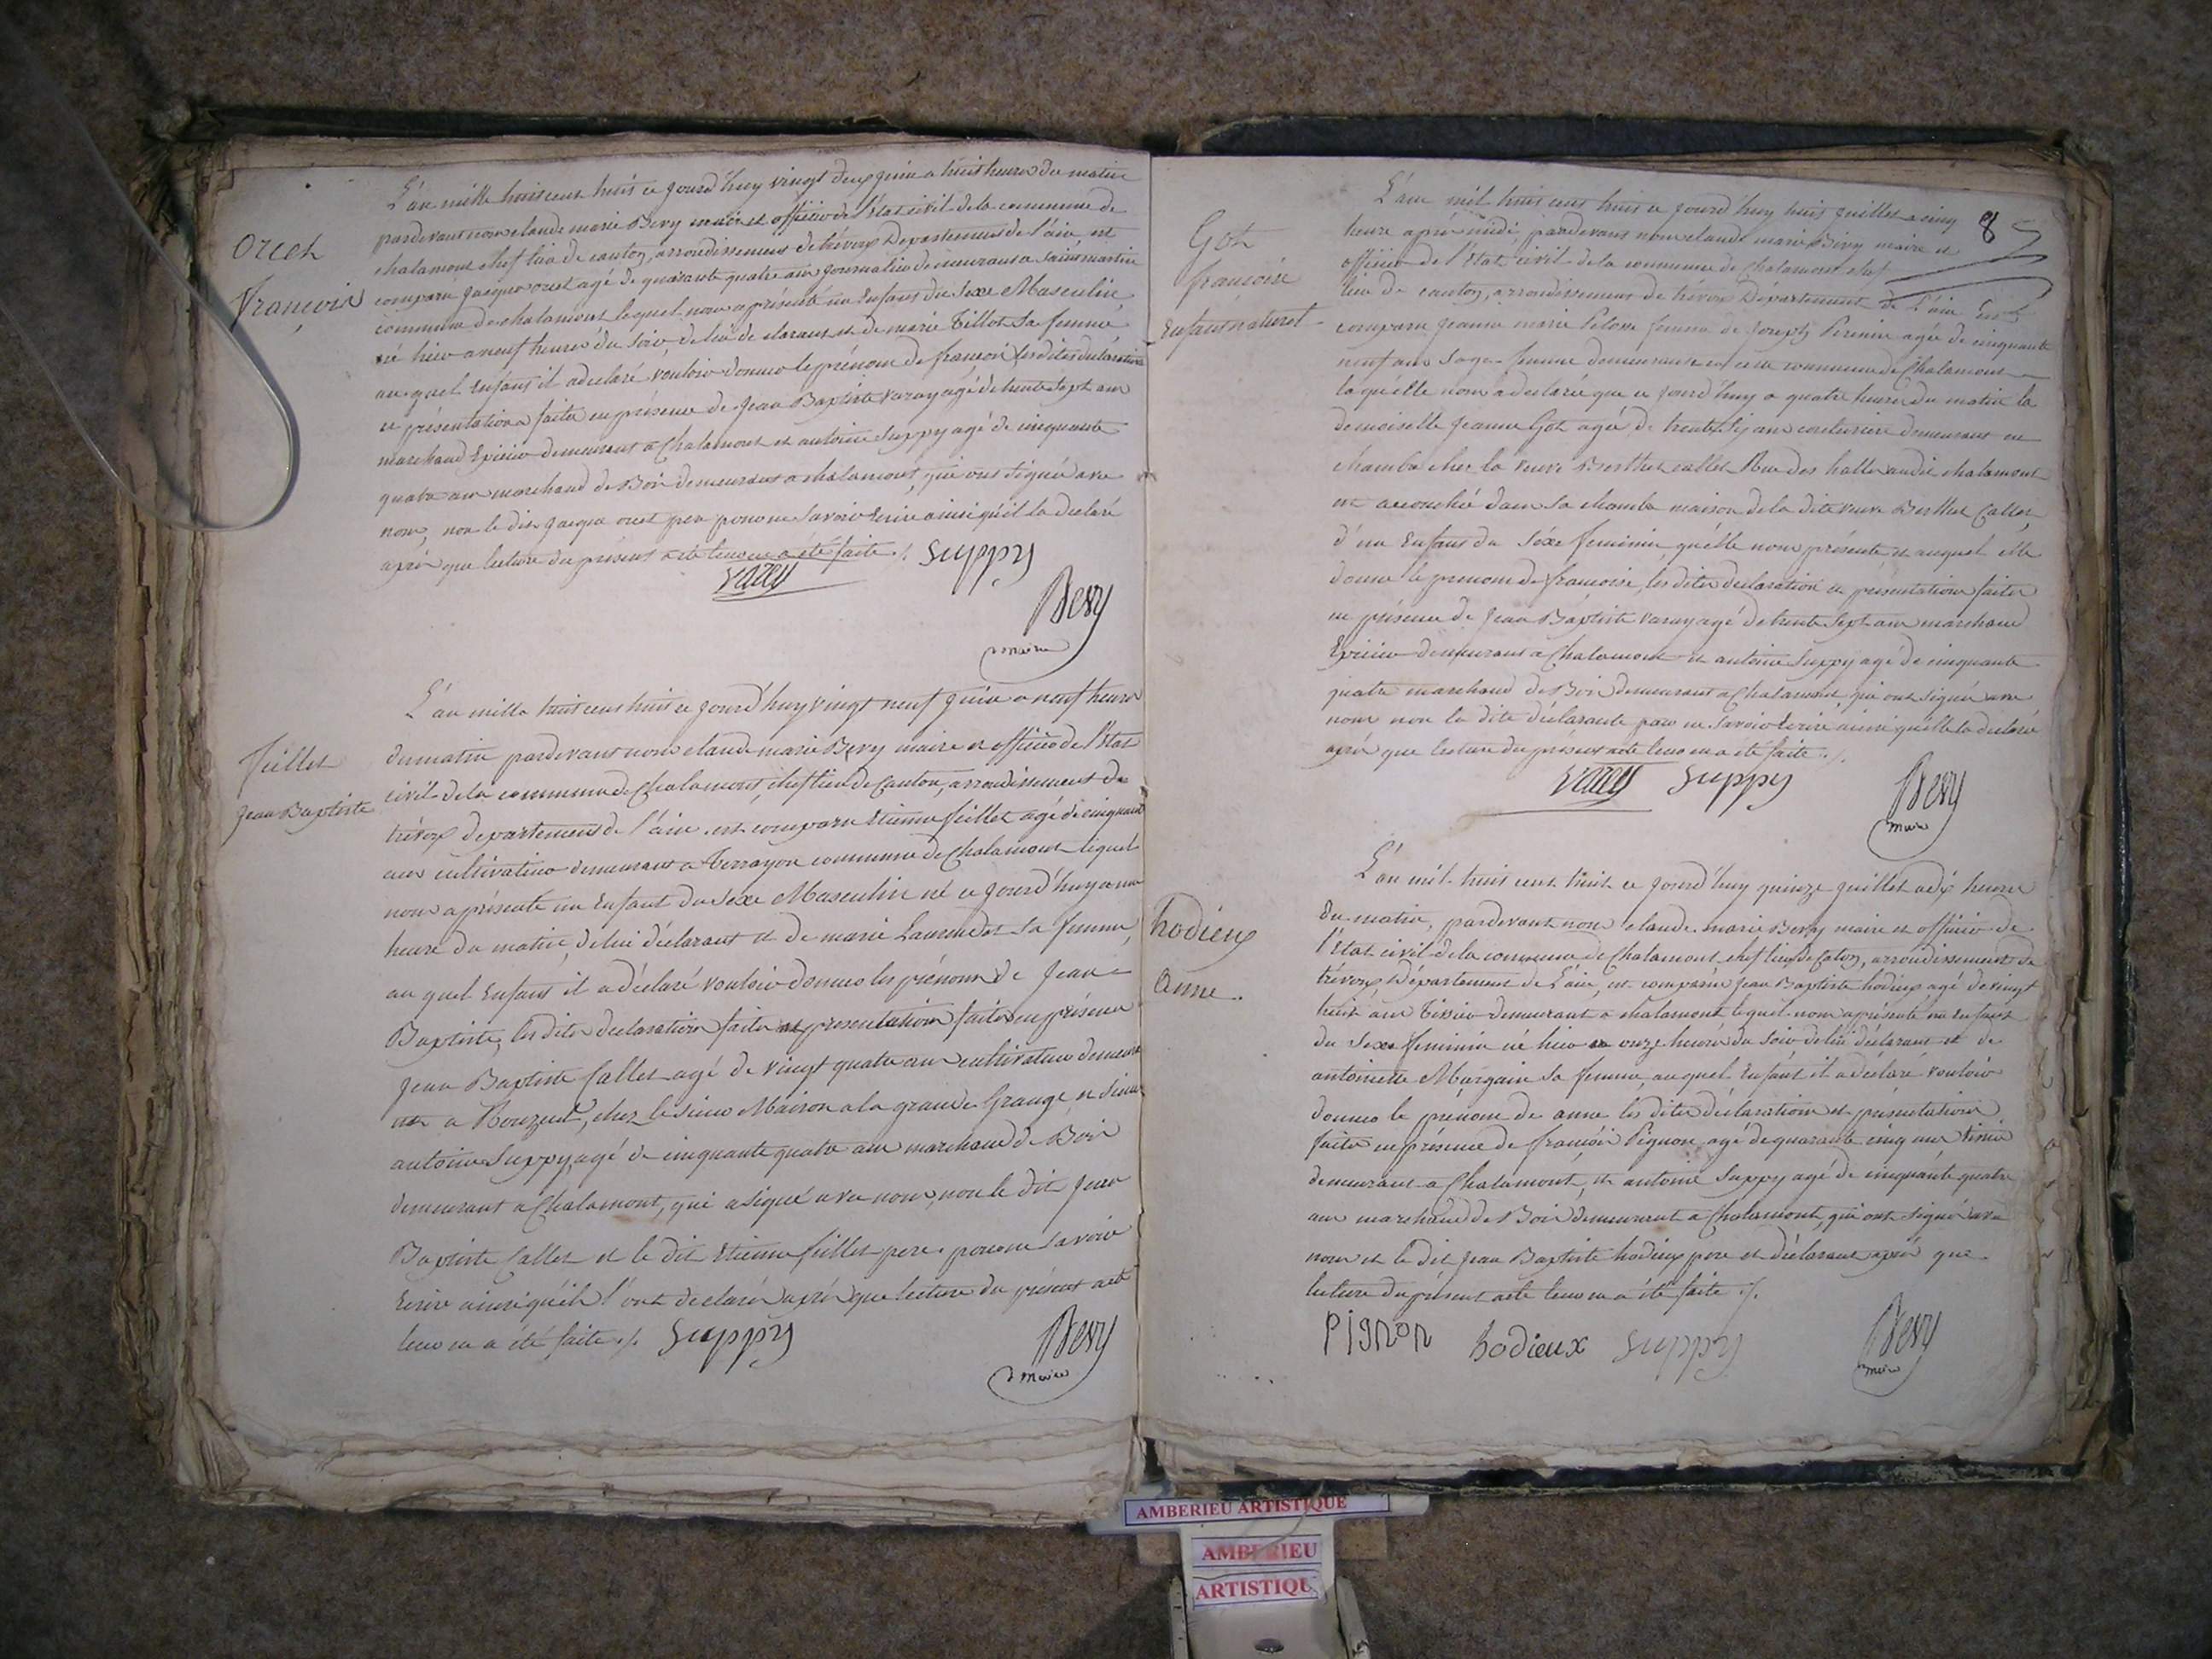 Orcet
François
L'an mille huit cent huit ce jourd'huy vingt deux juin a huit heures du matin
pardevant nous claude marie Bevy maire et officier de l'état civil de la commune de
chalamont chef lieu de canton, arrondissement de trévoux Departement de l'ain, est
comparu jacques orcet agé de quarante quatre ans journalier demeurant a saint martin
commune de chalamont lequel nous a présenté un Enfant du Sexe Masculin
né hier a neuf heures du soir, de lui déclarant et de marie Tillot sa femme
au quel Enfant il a declaré vouloir donner le prénom de françois les dites declaration
et présentation faite en présence de Jean Baptiste varay agé de trente sept ans
marchand Epicier demeurant a Chalamont et antoine Suppy agé de cinquante
quatre ans marchand de Bois demeurant a chalamont, qui ont signé avec
nous, non le dit jacques orcet pere pour ne savoir Ecrire ainsi qu'il la declaré
après que lecture du présent acte leur en a été faite ./. Suppy
varay
Bevy
maire
fillet
Jean Baptiste
L'an mille huit cent huit ce jourd'huy vingt neuf juin a neuf heures
du matin pardevant nous claude marie Bevy maire et officier de l'état
civil de la commune de Chalamont, chef lieu de Canton, arrondissement de
trévoux departement de l'ain est comparu Etienne fillet agé de cinquante
ans cultivateur demeurant a Terrayon commune de Chalamont lequel
nous a présenté un Enfant du Sexe Masculin né ce jourd'huy a une
heure du matin, de lui déclarant et de marie sa femme,
au quel Enfant il a déclaré vouloir donner les prénoms de Jean
Baptiste, les dites declaration faite et presentation faites en présence
Jean Baptiste Callet agé de vingt quatre ans cultivateur demeu
rant a chez le sieur Mairon a la grande Grange et sieur
antoine Suppy agé de cinquante quatre ans marchand de Bois
demeurant a Chalamont, qui a signé avec nous, non le dit Jean
Baptiste Callet et le dit Etienne fillet pere pour ne savoir
Ecrire ainsi qu'ils l'ont declaré après que lecture du présent acte
leur en a été faite ./. Suppy
Bevy
maire
8
Got
françoise
Enfant naturel
L'an mil huit cent huit ce jourd'huy huit juillet a cinq
heure après midi, pardevant nous claude marie Bevy maire et
officier de l'état civil de la commune de Chalamont chef
lieu de canton, arrondissement de trévoux Département de l'ain Est
comparu jeanne marie femme de joseph Perrein agée de cinquante
neuf ans sage-femme demeurant en cette commune de Chalamont
laquelle nous a declarée que ce jourd'huy a quatre heures du matin la
demoiselle Jeanne Got agée de trente six ans couturiere demeurant en
chambre chez la veuve Berthet callet Rue des halles au dit chalamont
est accouchée dans sa chambre maison de la dite veuve Berthet Callet,
d'un Enfant du Séxe feminin qu'elle nous présente et auquel elle
donne le prenom de françoise, les dites declaration et présentation faites
en présence de Jean Baptiste varay agé de trente Sept ans marchand
Epicier demeurant a Chalamont et antoine Suppy agé de cinquante
quatre marchand de Bois demeurant a Chalamont, qui ont signé avec
nous non la dite déclarante pour ne savoir Ecrire ainsi qu'elle la declaré
après que lecture du présent acte leur en a été faite ./.
varay Suppy
Bevy
maire
hodieux
anne.
L'an mil huit cent huit ce jourd'huy quinze juillet a dix heures
du matin, pardevant nous claude marie Bevy maire et officier de
l'état civil de la commune de Chalamont chef lieu de Caton, arrondissement de
trévoux Département de L'ain, est comparu Jean Baptiste hodieux agé de vingt
huit ans Tissier demeurant a chalamont lequel nous a présenté un Enfant
du Sexe féminin né hier a onze heures du soir de lui déclarant et de
antoinette Margain sa femme, auquel Enfant il a declaré vouloir
donner le prénom de anne les dites déclaration et présentation
faites en présence de françois Pignon agé de quarante cinq ans tissier
demeurant a Chalamont, et antoine Suppy agé de cinquante quatre
ans marchand de Bois demeurant a Chalamont, qui ont signé avec
nous et le dit Jean Baptiste hodieux pere et déclarant après que
lecture du présent acte leur en a été faite ./.
Pignon hodieux Suppy
Bevy
maire
AMBERIEU ARTISTIQUE
AMBERIEU
ARTISTIQU